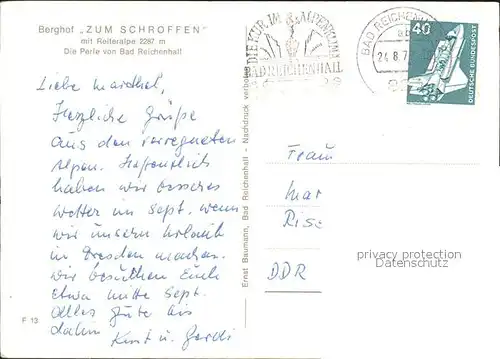 Berghof „ZUM SCHROFFEN"
mit Reiteralpe 2287 m
Die Perle von Bad Reichenhall
Liebe
Herzliche Grüße
aus den verregneten
Alpen. Hoffentlich
haben wir besseres
Wetter im Sept. wenn
wir unsern Urlaub
in Dresden machen.
Wir besuchen Euch
etwa mitte Sept.
Alles gute bis
dahin Kurt u. Gerdi
F 13
Ernst Baumann, Bad Reichenhall - Nachdruck verboten
DIE KUR IM ALPENKLIMA
BAD REICHENHALL
BAD REICHENHALL
24.8.7
40
DEUTSCHE BUNDESPOST
Frau
Mar
Rise
DDR
privacy protection
Datenschutz